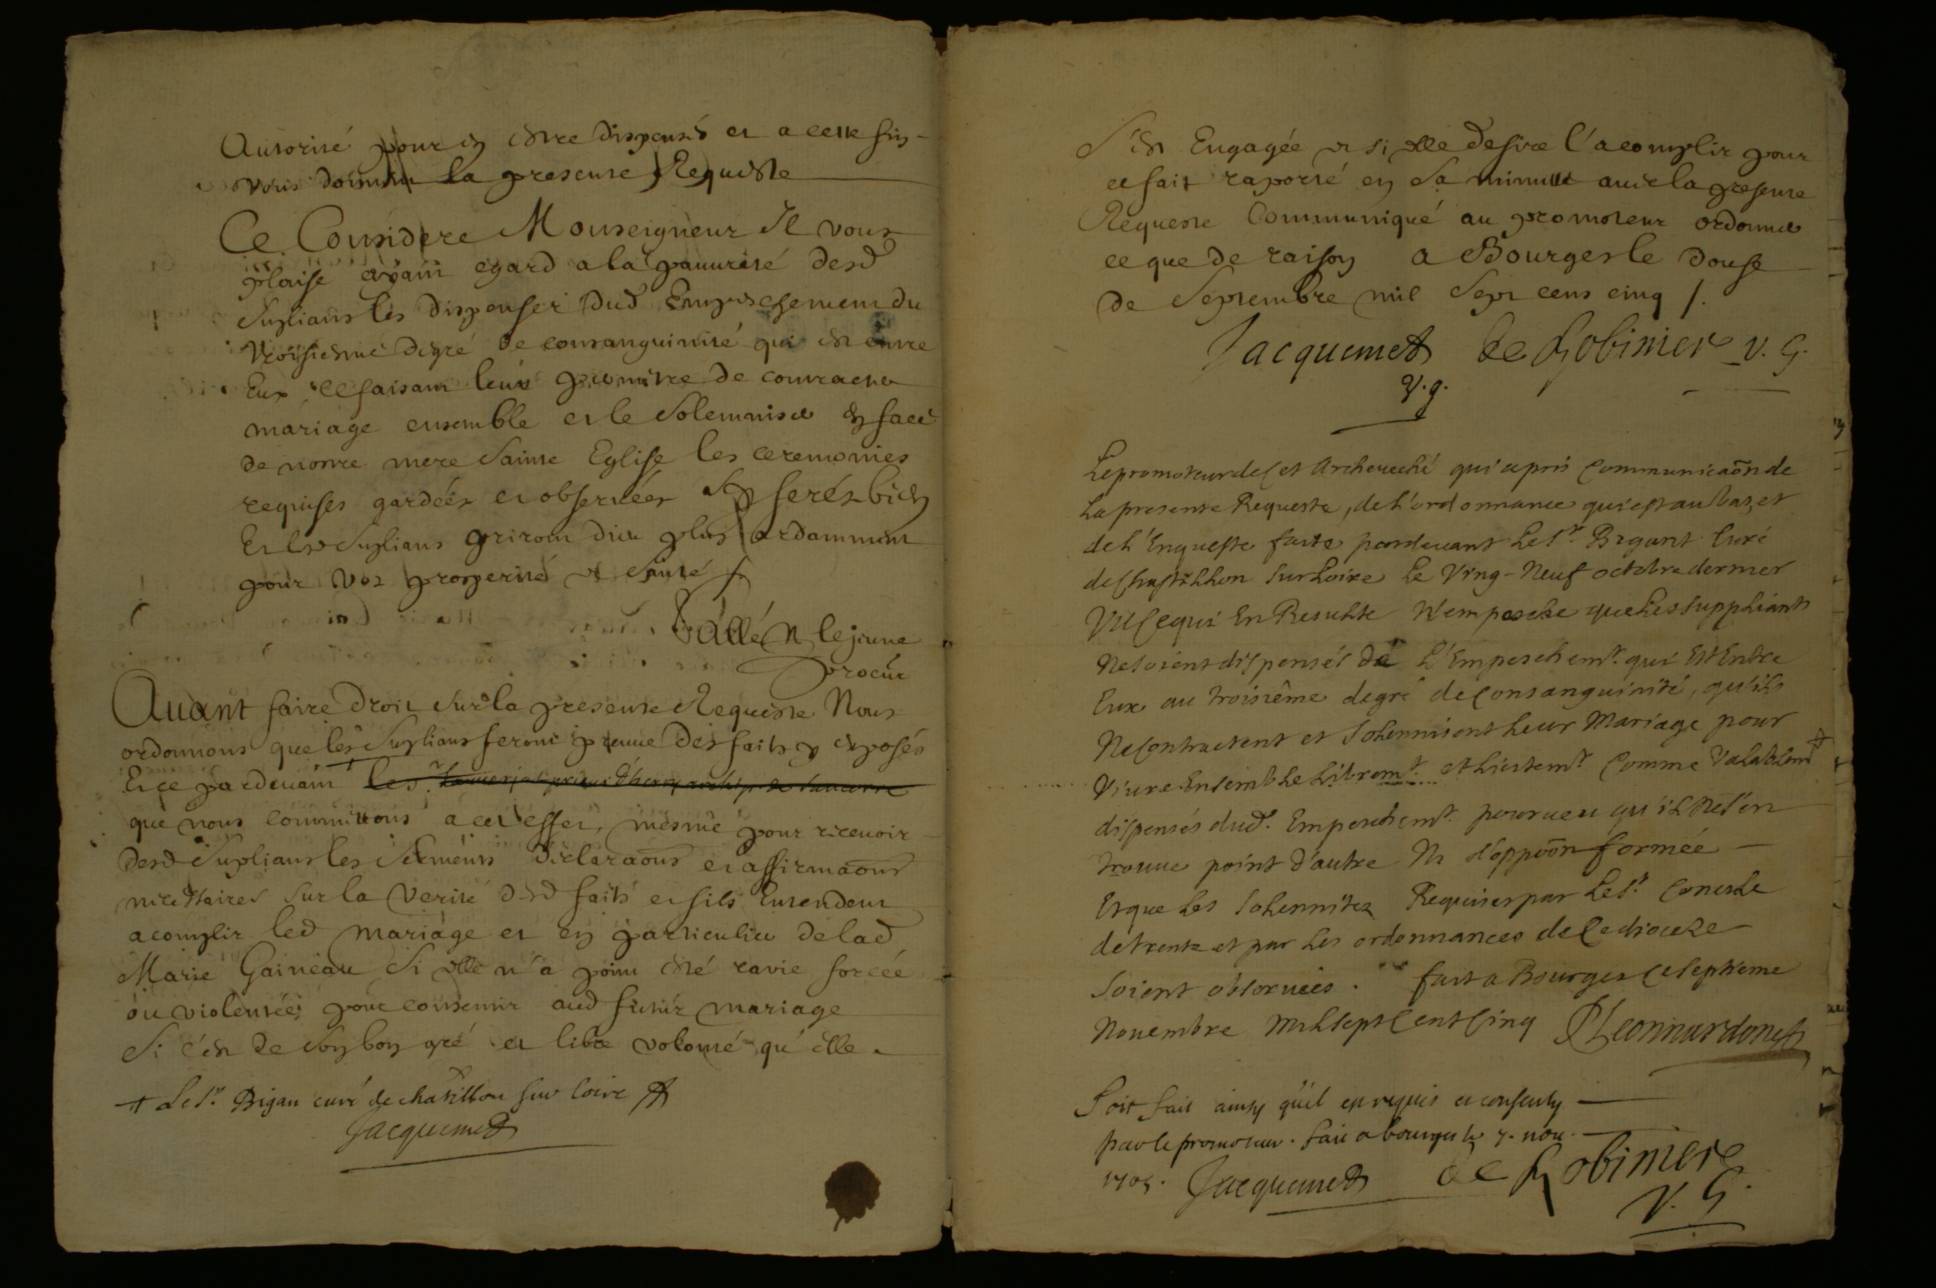 Autorité pour en estre dispensés et a cette fin
vous donnent la presente Requeste
Ce Consideré Monseigneur Il vous
plaise ayant egard a la pauureté desd
suplians les dispenser dud Empeschement du
troisiesme degré de consanguinité qui est entre
Eux ce faisant leur permettre de contracter
mariage ensemble et le solemniser en face
de nostre mere sainte Eglise les ceremonies
requises gardées et obseruées et ferés bien
Et les suplians priront dieu plus ardamment
pour vos prosperité et santé
lejeune
procur
Auant faire droit sur la presente Requeste Nous
ordonnons que les suplians feront preuue des faits y exposés
Et ce pardeuant les.
que nous committons a cet effet, mesme pour receuoir
desd suplians les serments declaraons et affirmaons
necessaires sur la verité desd faits et sils entendent
acomplir led mariage et en particulier de lad
Marie Gaineau si elle n'a point esté ravie forcée
ou violentée pour consentir aud futur mariage
si c'est de son bon gré et libre volonté qu'elle
+ Le Sr. Bigan curé de chastillon sur loire
Jacquemet
s'est Engagée et si elle desire l'acomplir pour
ce fait raporté en sa minutte auec la presente
Requeste Communiqué au promoteur ordonner
ce que de raison a Bourges le douse
de septembre mil sept cens cinq /.
Jacquemet de Gobiniere V. G.
v. g.
Le promoteur de cet Archeueché qui a pris communicaon de
La presente Requeste, de l'ordonnance qui est au bas, et
de l'Enqueste faite pardeuant Le Sr. Bigant Curé
de Chastillon sur Loire Le Ving-Neuf octobre dernier
Vu ce qui En Resulte N'empesche que Les suppliants
Ne soient dispensés de L'Empeschemt. qui Est Entre
Eux au troisième degré de consanguinité, qu'ils
Ne contractent et solennisent Leur Mariage pour
Viure Ensemble Libremt. et Licitemt. comme Valablemt
dispensés dud. Empeschemt. pourueu qu'il Ne s'en
trouue point d'autre Ni d'oppoon formée
Et que Les solennitez Requises par Le St. Concile
de trente et par Les ordonnances de Ce diocese
soient obseruées. fait a Bourges ce septieme
Novembre Mil sept Cent Cinq PLeonnardonet
Soit fait ainsy qu'il est requis et consenty
par le promoteur. fait a bourges le 7. nou.
1705. Jacquemet de Gobiniere
V. G.